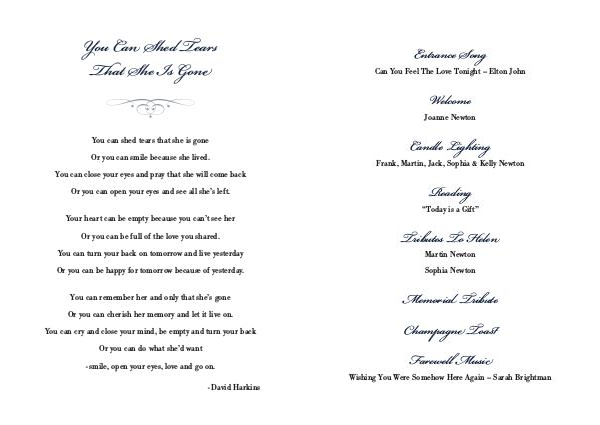 You Can Shed Tears
That She Is Gone
You can shed tears that she is gone
Or you can smile because she lived.
You can close your eyes and pray that she will come back
Or you can open your eyes and see all she's left.
Your heart can be empty because you can't see her
Or you can be full of the love you shared.
You can turn your back on tomorrow and live yesterday
Or you can be happy for tomorrow because of yesterday.
You can remember her and only that she's gone
Or you can cherish her memory and let it live on.
You can cry and close your mind, be empty and turn your back
Or you can do what she'd want
-smile, open your eyes, love and go on.
- David Harkins
Entrance Song
Can You Feel The Love Tonight – Elton John
Welcome
Joanne Newton
Candle Lighting
Frank, Martin, Jack, Sophia & Kelly Newton
Reading
“Today is a Gift”
Tributes To Helen
Martin Newton
Sophia Newton
Memorial Tribute
Champagne Toast
Farewell Music
Wishing You Were Somehow Here Again – Sarah Brightman